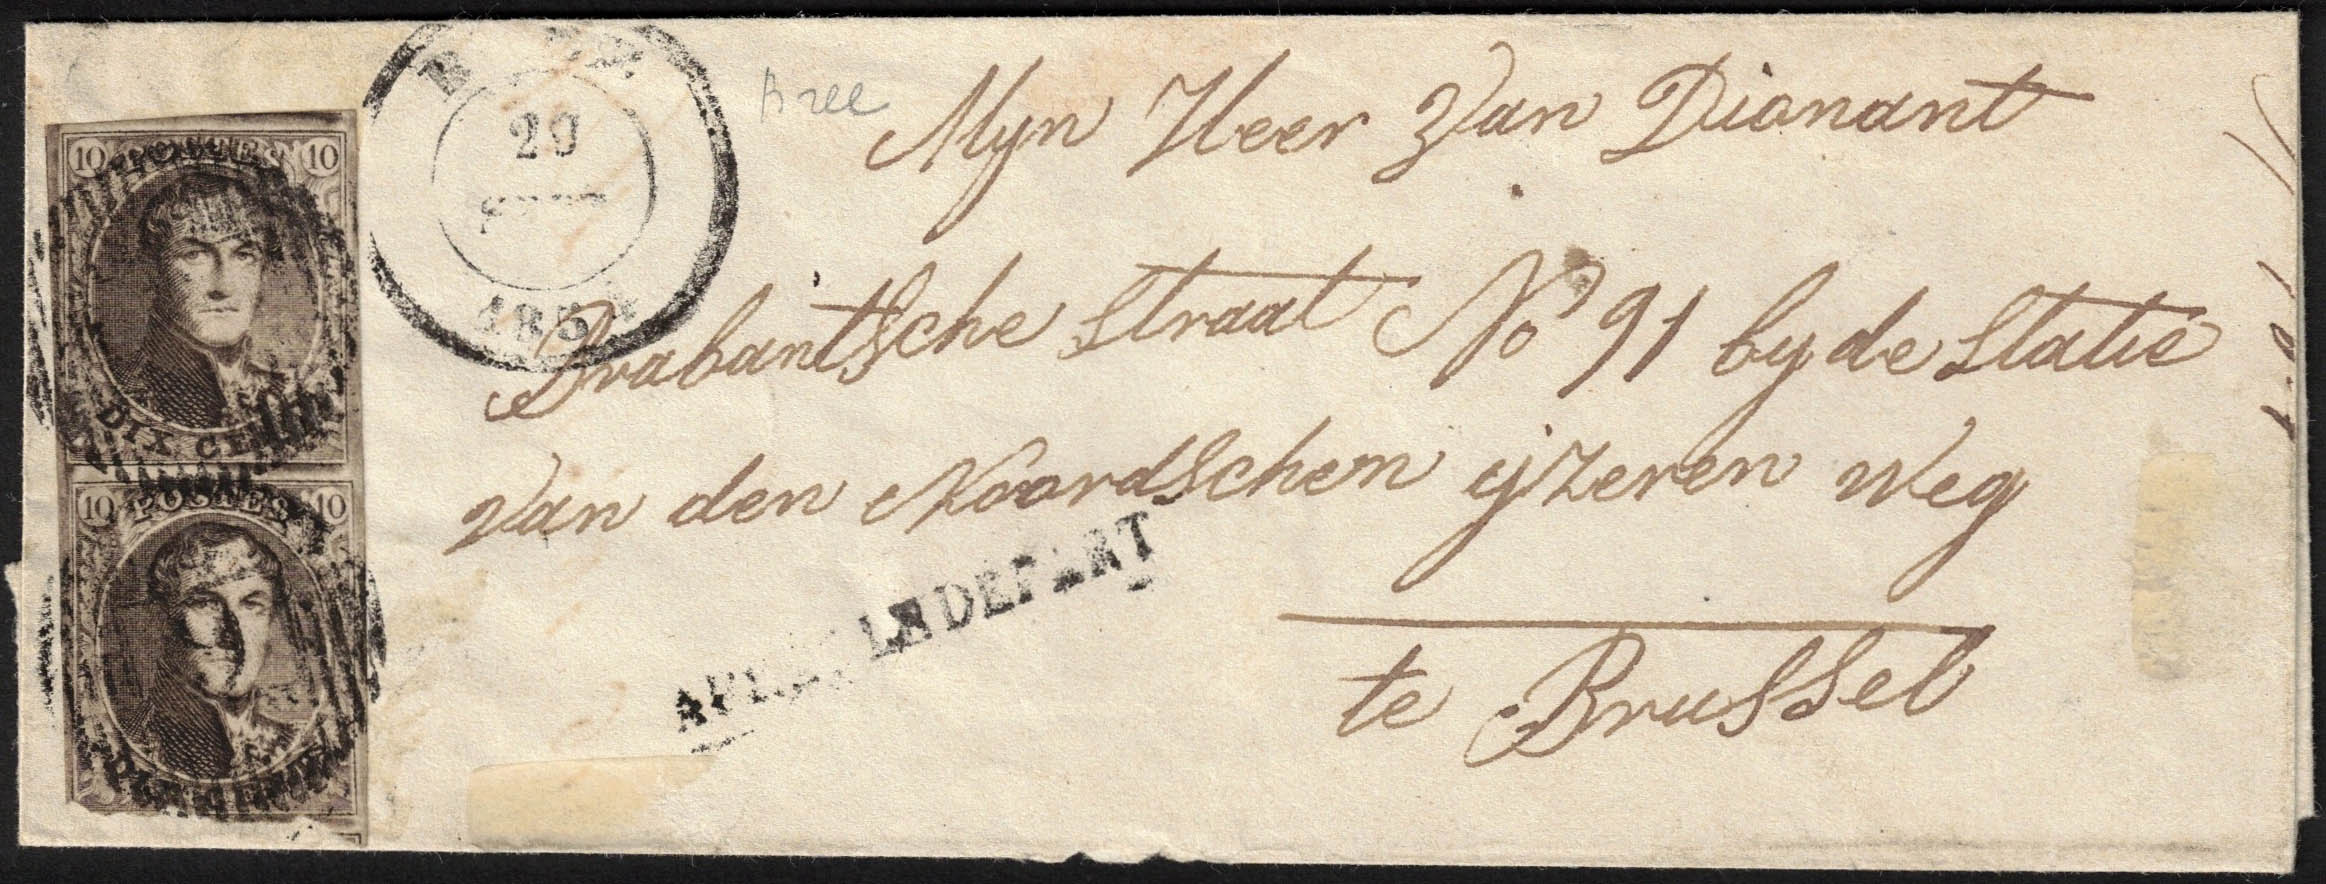 10 POSTES 10
DIX CE
10 POSTES 10
29
SEPT
185
Bree
Myn Heer Van Dionant
Brabantsche straat No 91 by de Statie
van den Noordschen ijzeren weg
te Brussel
LE DEPART